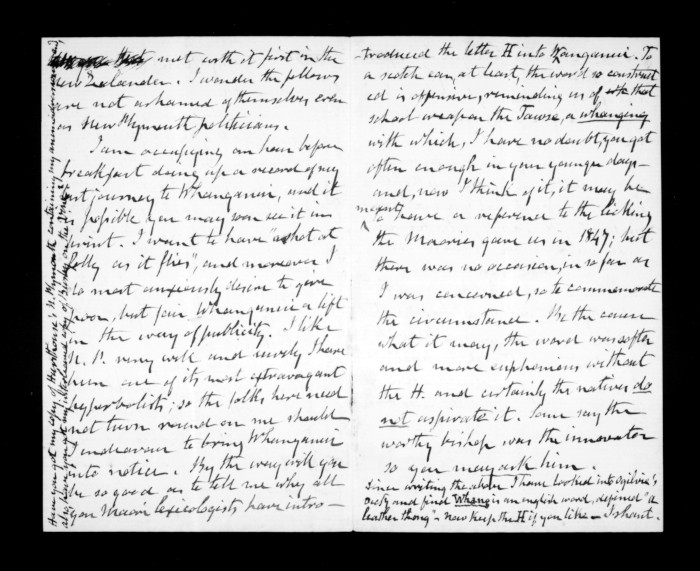 met with it first in the
New Zealander. I wonder the fellows
are not ashamed of themselves even
as New Plymouth politicians.
I am occupying an hour before
breakfast doing up a record of my
last journey to Whanganui, and if
it is possible you may soon see it in
print. I want to have "a shot at
folly as it flies", and moreover I
do most anxiously desire to give
poor, but fair Whanganui a lift
in the way of publicity. I like
N. P. very well and surely I have
been one of its most extravagant
hyperbolists; so the folks here need
not turn round on me should
I endeavour to bring Whanganui
into notice. By the way will you
be so good as to tell me why all
you Maori lexicologists have intro-
Have you got my copy of Hursthouse's N. Plymouth containing my
also, have you got my copy of on the
-troduced the letter H into Wanganui. To
a scotch ear, at least, the word so construct
ed is offensive, reminding us of that
school weapon the Tawse, a whanging
with which, I have no doubt, you got
often enough in your younger days—
and, now I think of it, it may be
meant
a or reference to the licking
the Maories gave us in 1847; but
there was no occasion, in so far as
I was concerned, so to commemorate
the circumstance. Be the cause
what it may, the word was softer
and more euphonious without
the H. and certainly the natives do
not aspirate it. Some say the
worthy bishop was the innovator
so you may ask him.
Since writing the above I have looked into Ogilvie's
Dicty and find Whang is an english word, defined "a
leather thong" – now keep the H if you like — I shant.